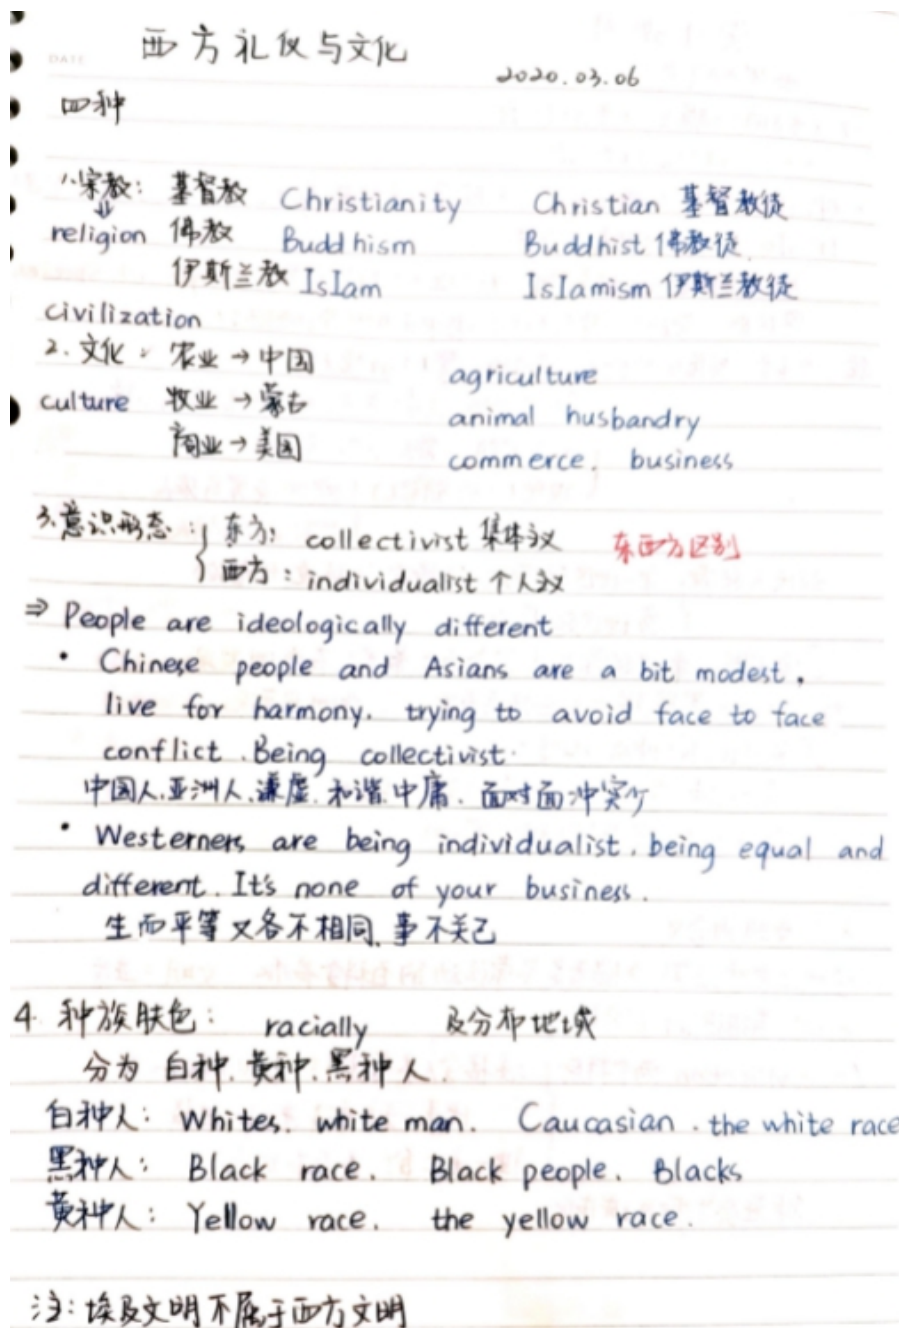 DATE
西方礼仪与文化
2020.03.06
四种
1.宗教: 基督教 Christianity Christian 基督教徒
⇓
religion 佛教 Buddhism Buddhist 佛教徒
伊斯兰教 Islam Islamism 伊斯兰教徒
civilization
2. 文化: 农业 → 中国 agriculture
culture 牧业 → 蒙古 animal husbandry
商业 → 美国 commerce, business
3.意识形态: 东方: collectivist 集体主义 东西方区别
西方: individualist 个人主义
⇒ People are ideologically different
· Chinese people and Asians are a bit modest,
live for harmony. trying to avoid face to face
conflict. Being collectivist.
中国人.亚洲人.谦虚.和谐.中庸. 面对面冲突
· Westerners are being individualist. being equal and
different. It's none of your business.
生而平等又各不相同. 事不关己
4. 种族肤色: racially 及分布地域
分为 白种.黄种.黑种人.
白种人: Whites. white man. Caucasian. the white race
黑种人: Black race. Black people. Blacks
黄种人: Yellow race. the yellow race.
注: 埃及文明不属于西方文明